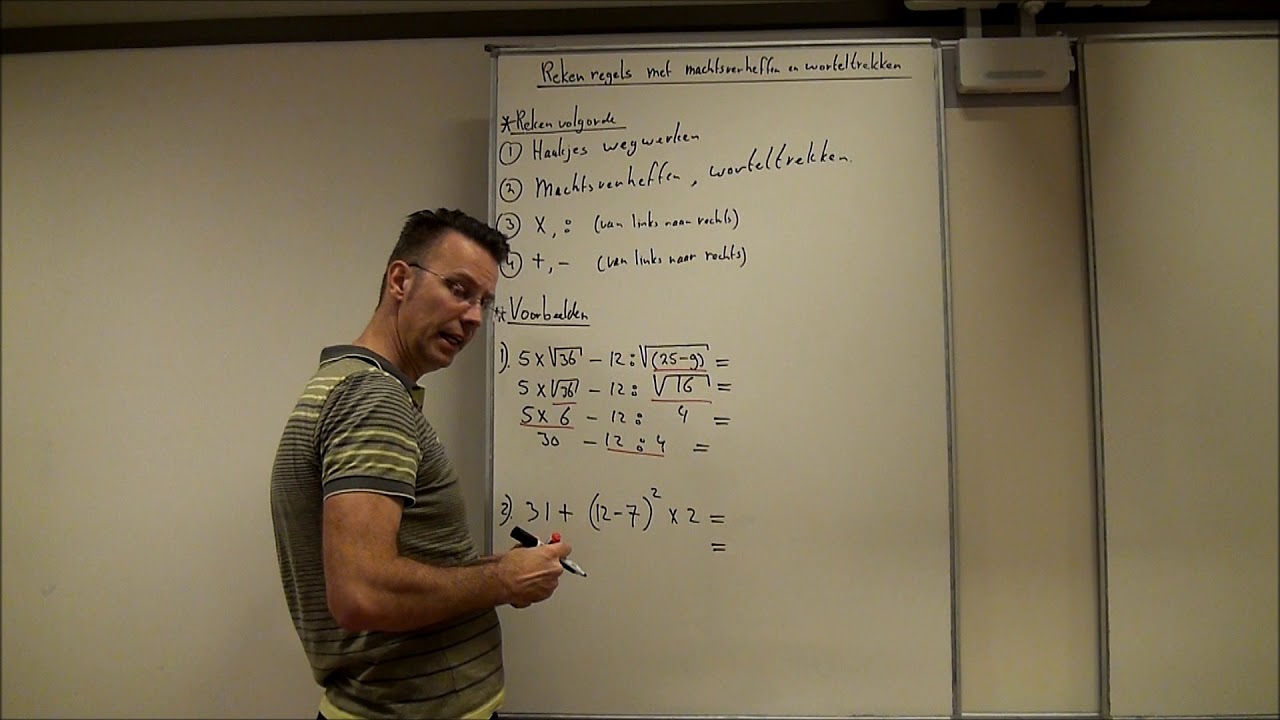 Reken regels met machtsverheffen en worteltrekken
*Reken volgorde
① Haakjes wegwerken
② Machtsverheffen, worteltrekken.
③ x, : (van links naar rechts)
④ +, - (van links naar rechts)
** Voorbeelden
1). 5 x √36 - 12 : √(25-9) =
5 x √36 - 12 : √16 =
5 x 6 - 12 : 4 =
30 - 12 : 4 =
2). 31 + (12-7)² x 2 =
=